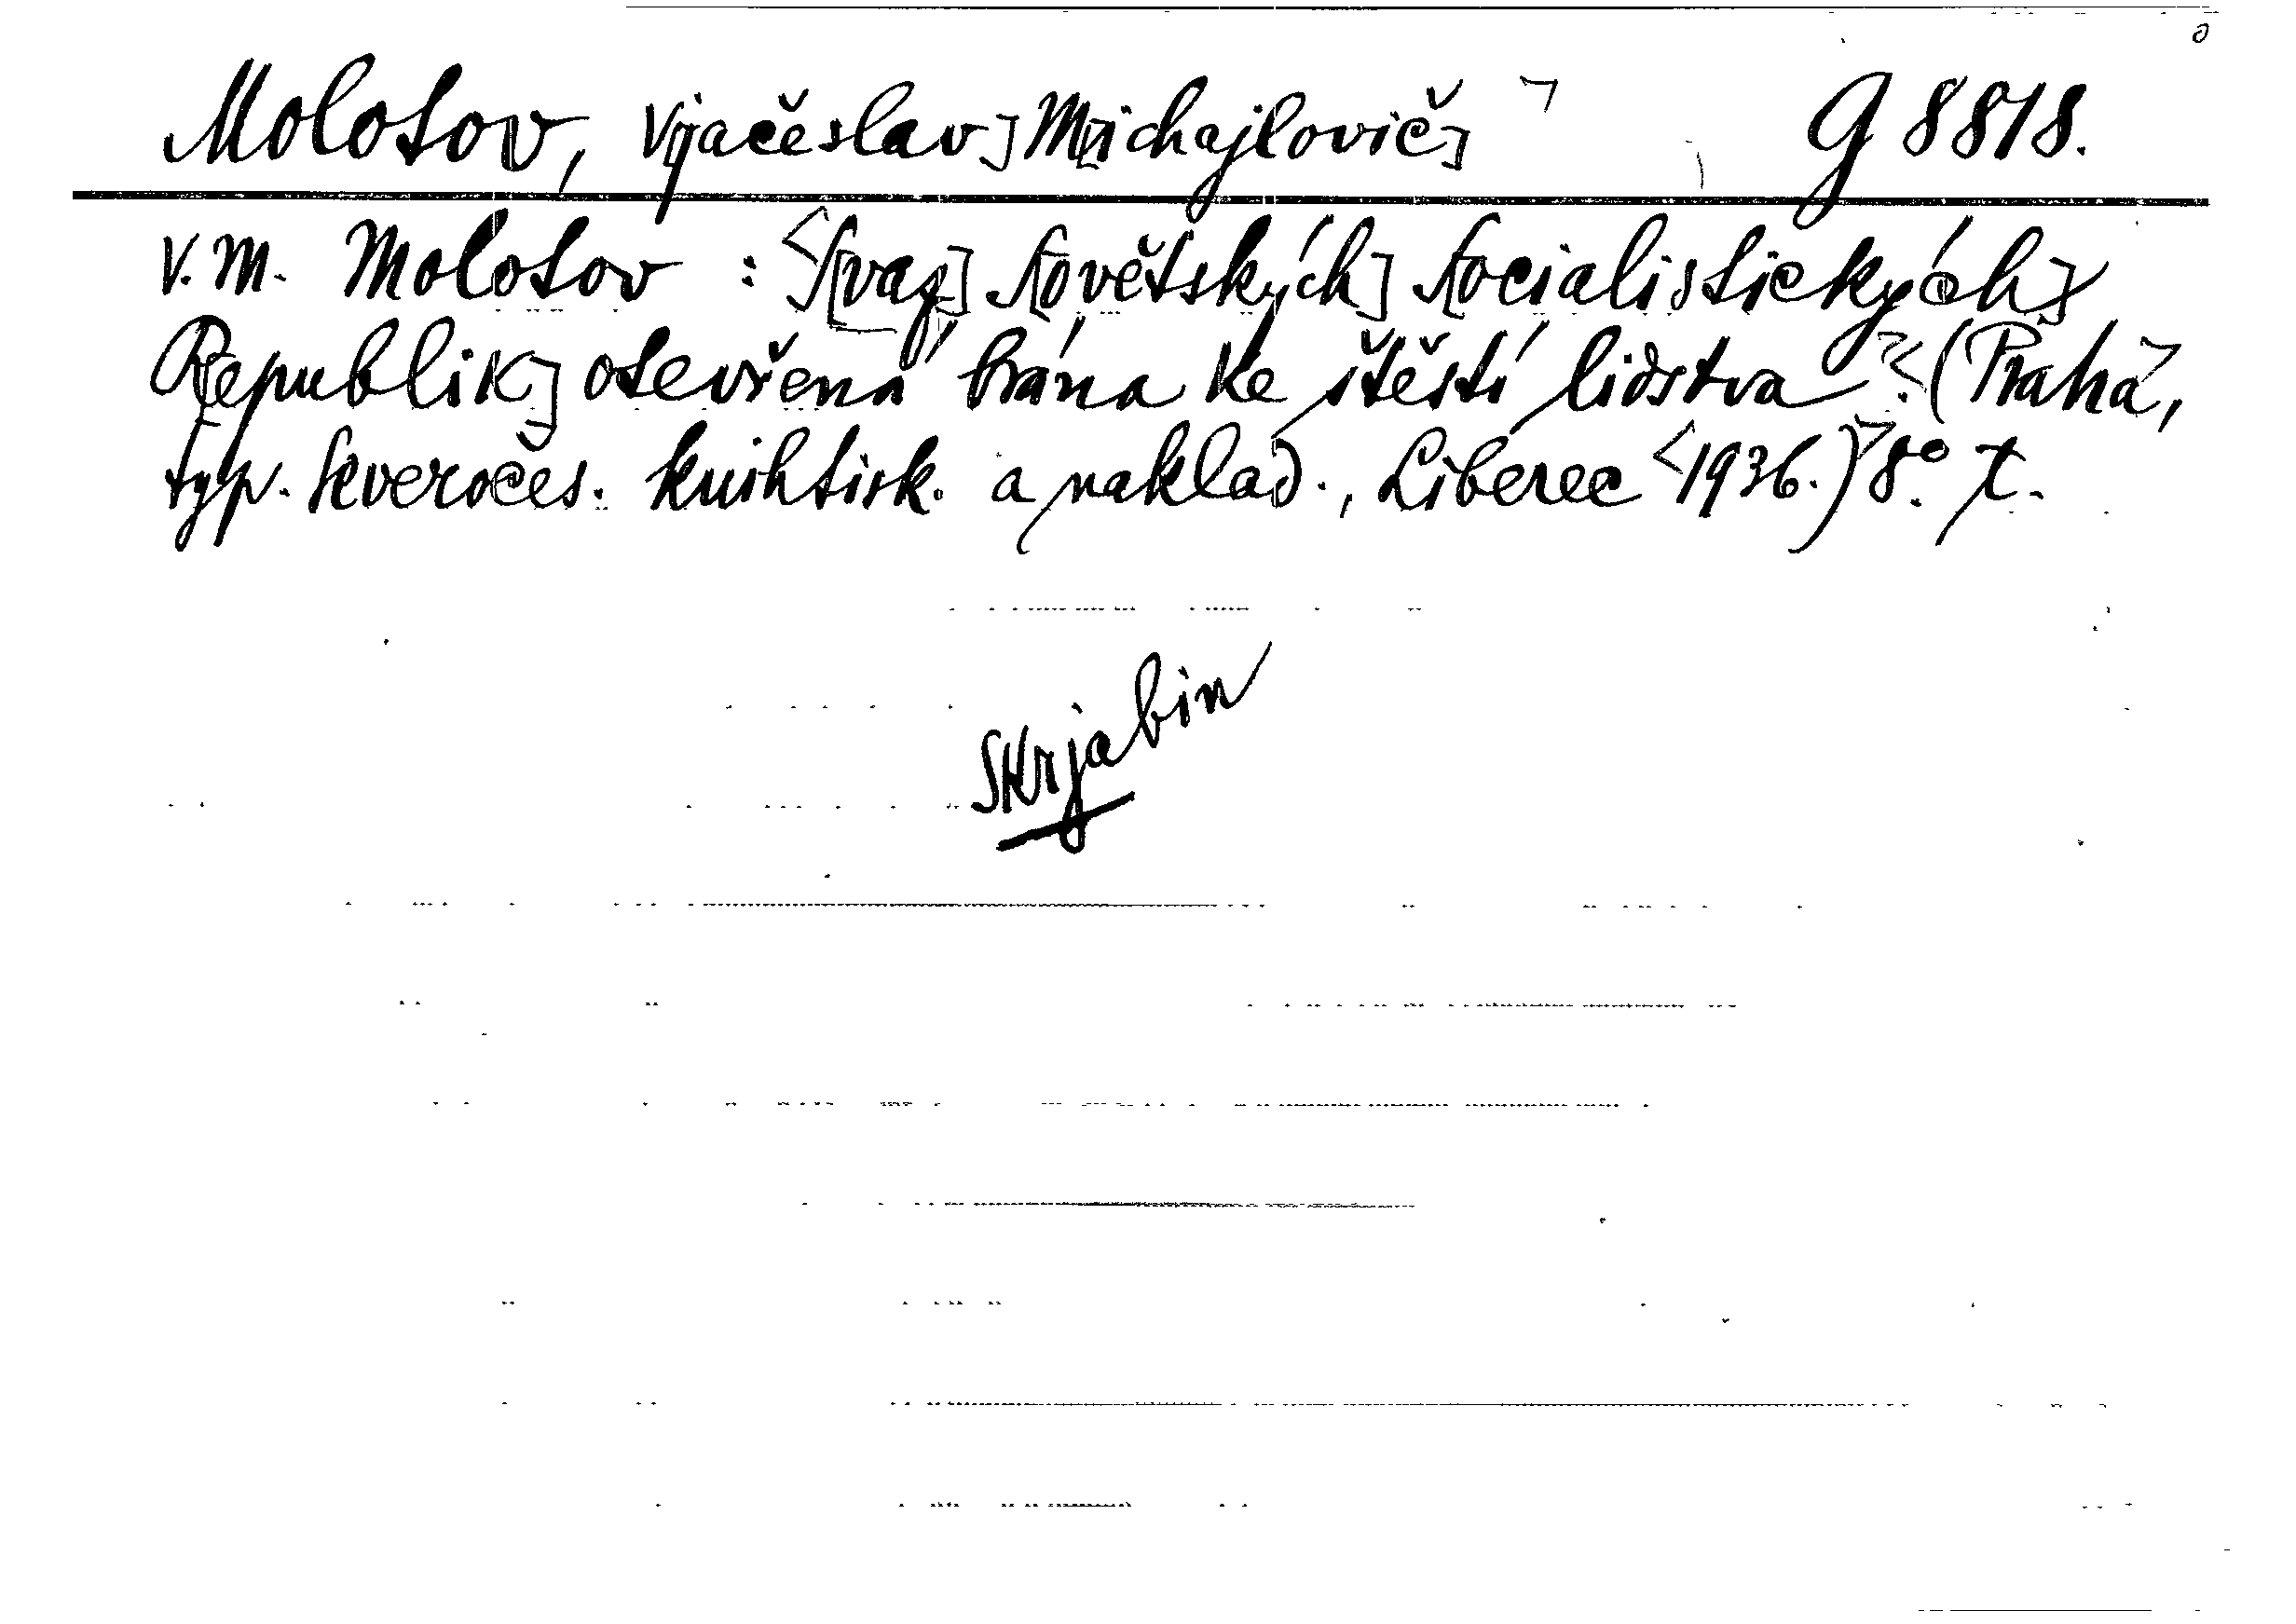 Molotov, V[jačeslav] M[ichajlovič] G 8818.
V. M. Molotov : <S[vaz] S[ovětských] S[ocialistických]
R[epublik] otevřená brána ke štěstí lidstva>. <(Praha>,
typ. Severočes. knihtisk. a naklad., Liberec <1936.)> 8°. t.
Skrjabin